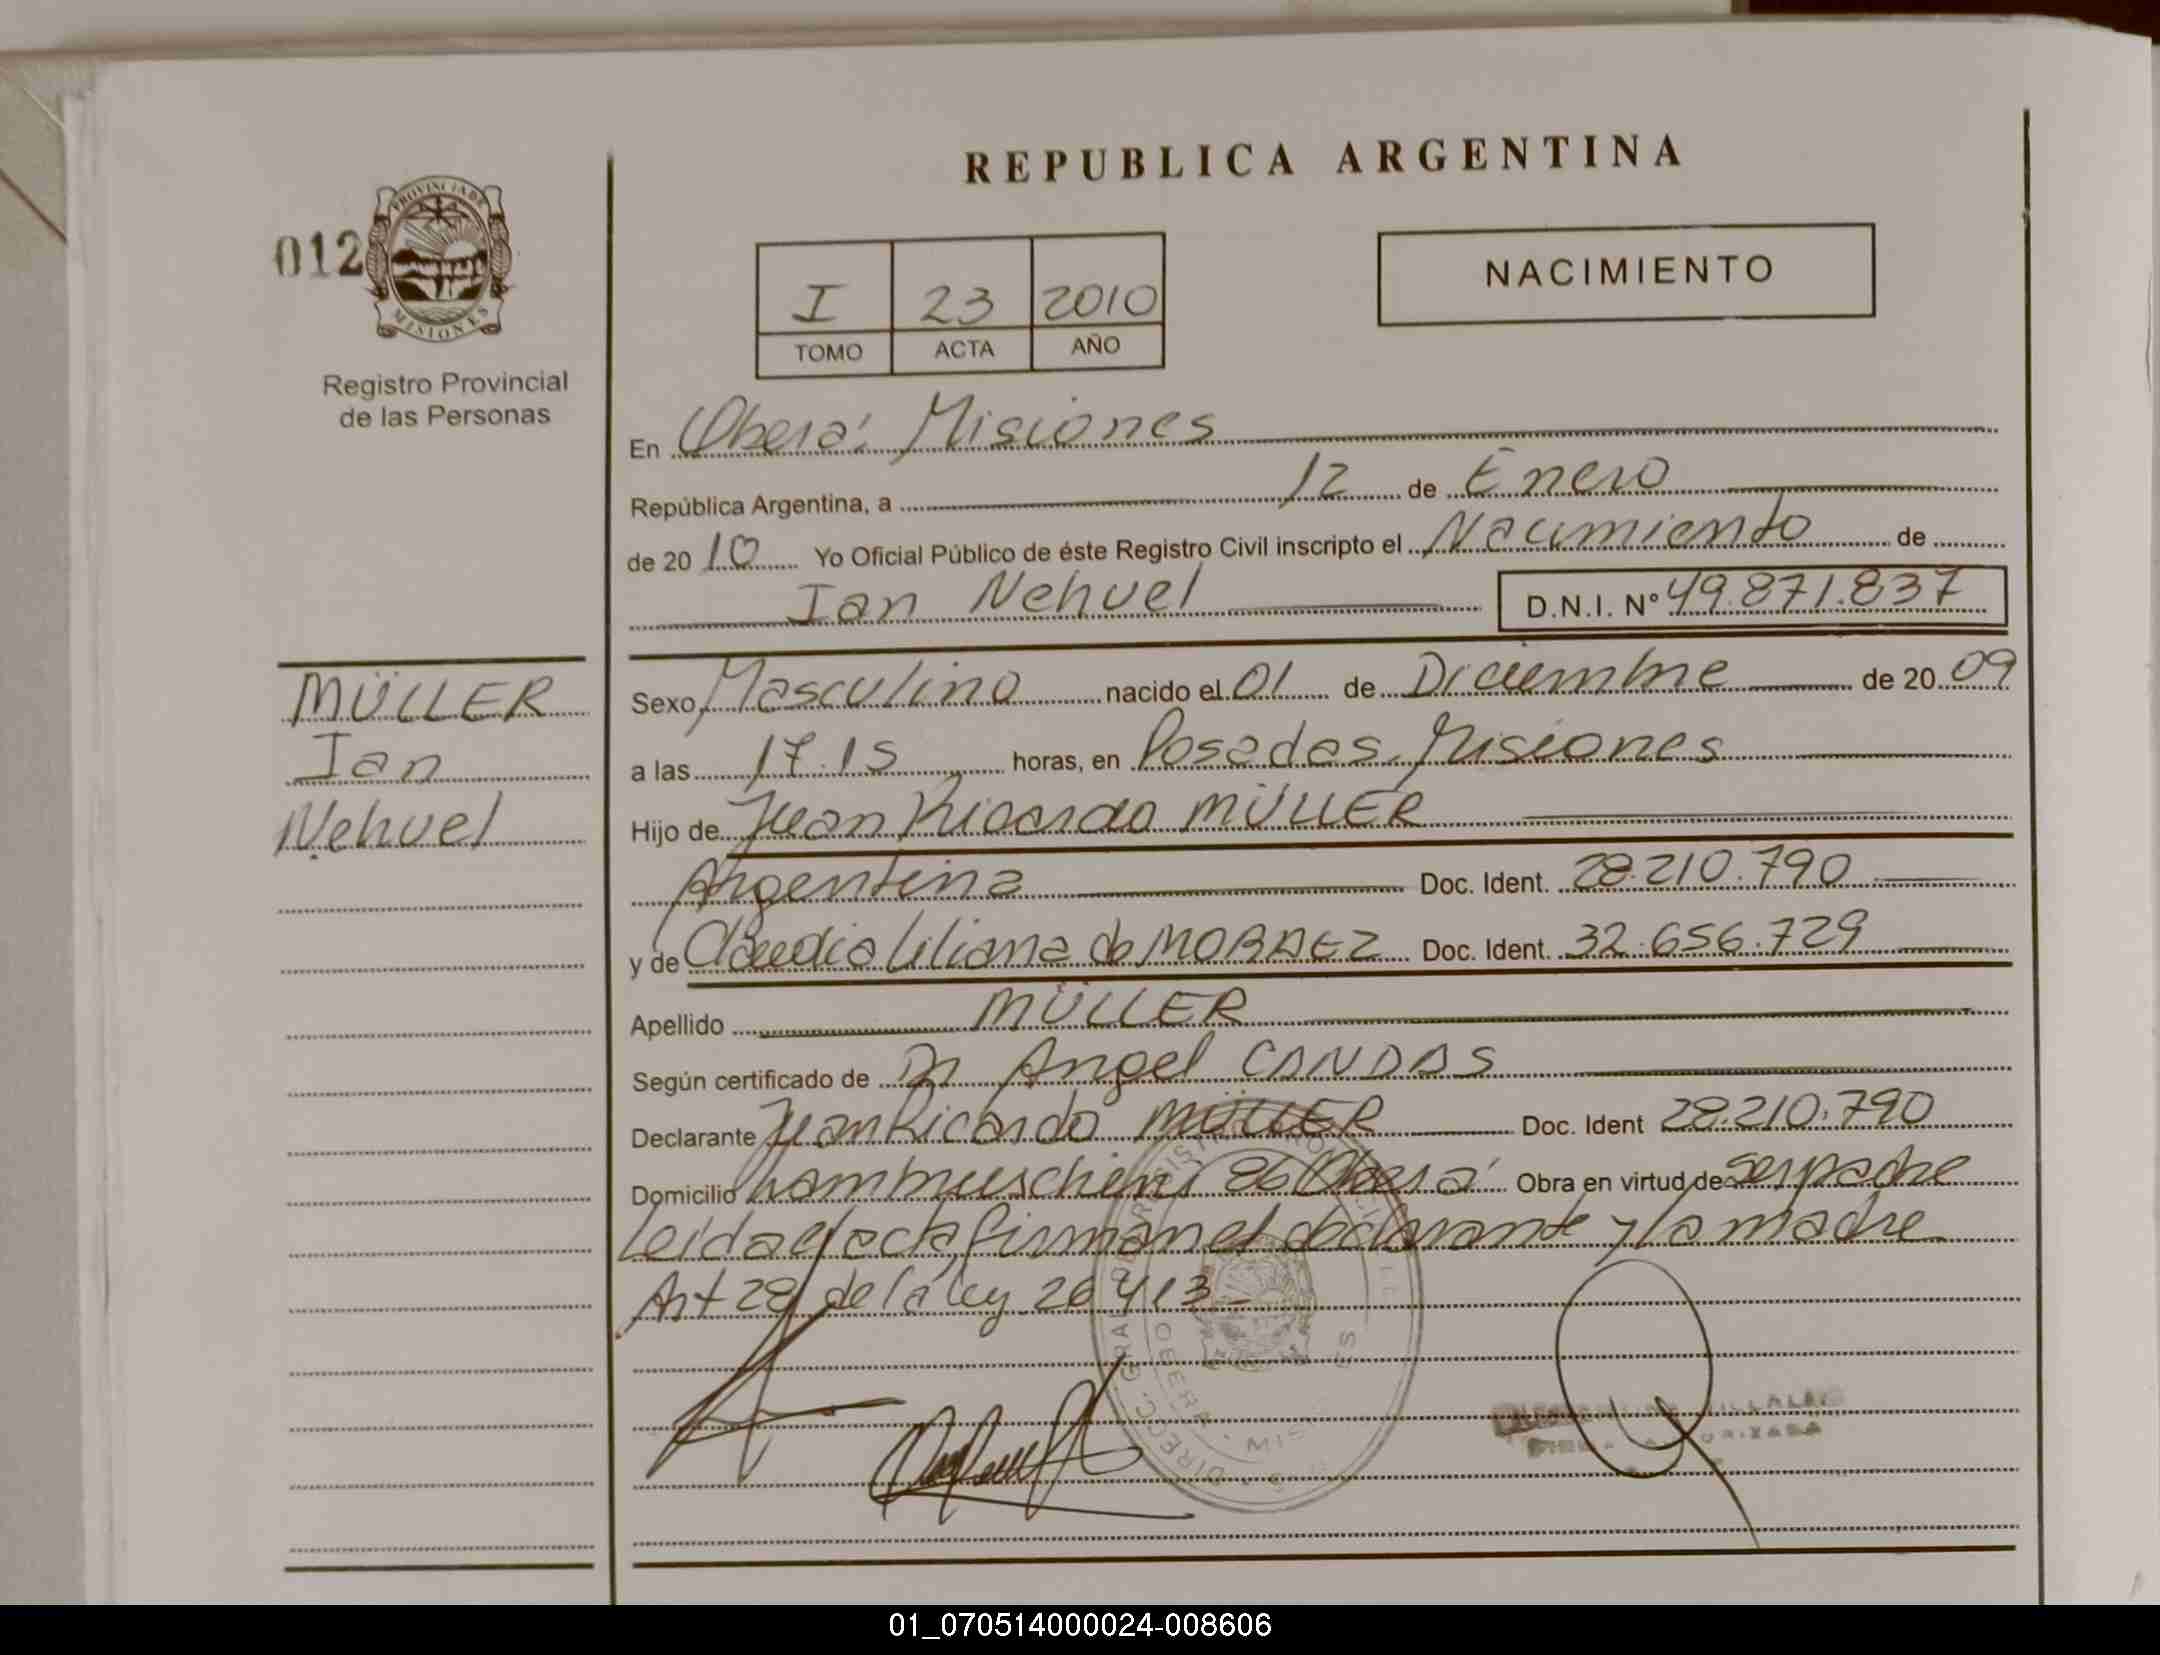 REPUBLICA ARGENTINA
012
PROVINCIA DE
MISIONES
Registro Provincial
de las Personas
I 23 2010
TOMO ACTA AÑO
NACIMIENTO
En Oberá: Misiones
República Argentina, a 12 de Enero
de 20 10 Yo Oficial Público de éste Registro Civil inscripto el Nacimiento de
Ian Nehuel D.N.I. Nº 49.871.837
MÜLLER
Ian
Nehuel
Sexo Masculino nacido el 01 de Diciembre de 20 09
a las 17.15 horas, en Posadas, Misiones
Hijo de Juan Ricardo MÜLLER
Argentina Doc. Ident. 28.210.790
y de Claudia Liliana de MORAEZ Doc. Ident. 32.656.729
Apellido MÜLLER
Según certificado de Dr Angel CANDAS
Declarante Juan Ricardo MÜLLER Doc. Ident 28.210.790
Domicilio 86 Oberá Obra en virtud de Ser padre
Leida el acta, firman el declarante y la madre
Art 28 de la ley 26 413 -
01_070514000024-008606